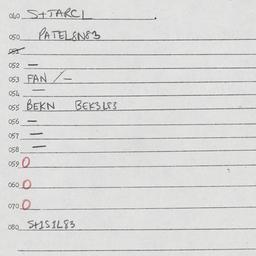 040 S+TARCL .
050 PATEL8N83
051
052 —
053 FAN /–
054 —
055 BEKN BEK3L83
056 —
057 —
058 —
059 0
060 0
070 0
080 S+1S1L83